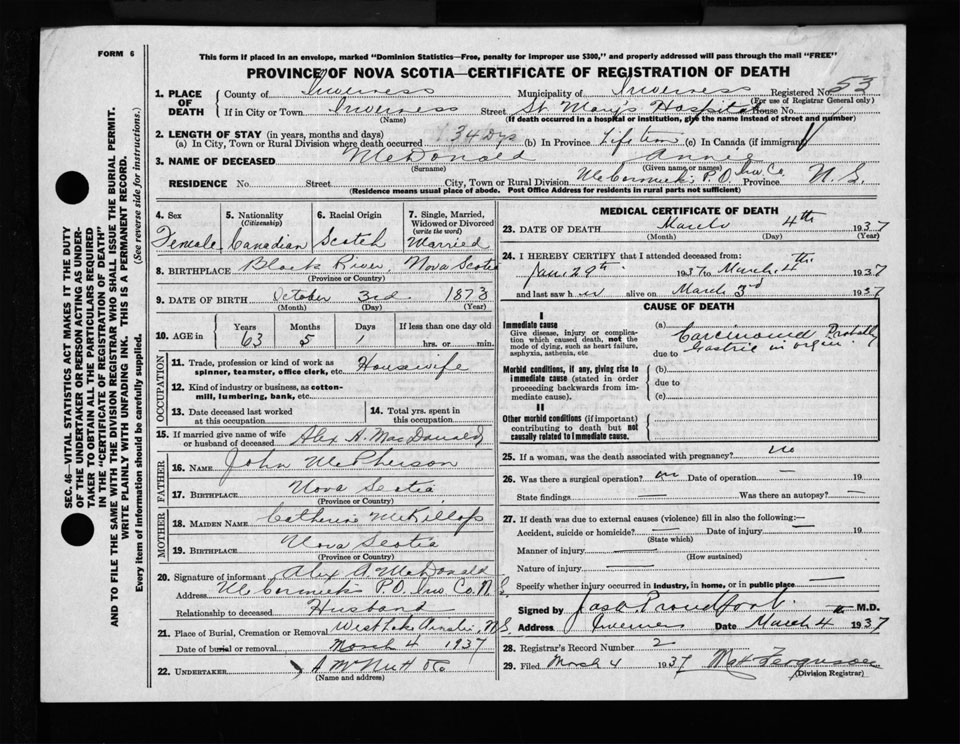 FORM 6
This form if placed in an envelope, marked "Dominion Statistics—Free, penalty for improper use $300," and properly addressed will pass through the mail "FREE"
PROVINCE OF NOVA SCOTIA—CERTIFICATE OF REGISTRATION OF DEATH
1. PLACE OF DEATH County of Inverness Municipality of Inverness Registered No. 53
(For use of Registrar General only)
If in City or Town Inverness Street St. Mary's Hospital House No.
(Name) (If death occurred in a hospital or institution, give the name instead of street and number)
2. LENGTH OF STAY (in years, months and days)
(a) In City, Town or Rural Division where death occurred 34 Dys (b) In Province Life time (c) In Canada (if immigrant)
3. NAME OF DECEASED McDonald Annie
(Surname) (Given name or names)
RESIDENCE No. Street City, Town or Rural Division McCormick's P.O. Inv Co. Province N. S.
(Residence means usual place of abode. Post Office Address for residents in rural parts not sufficient)
4. Sex Female
5. Nationality (Citizenship) Canadian
6. Racial Origin Scotch
7. Single, Married, Widowed or Divorced (write the word) Married
8. BIRTHPLACE Black River, Nova Scotia
(Province or Country)
9. DATE OF BIRTH October 3rd 1873
(Month) (Day) (Year)
10. AGE in Years 63 Months 5 Days 1 If less than one day old hrs. or min.
OCCUPATION
11. Trade, profession or kind of work as spinner, teamster, office clerk, etc. Housewife
12. Kind of industry or business, as cotton-mill, lumbering, bank, etc.
13. Date deceased last worked at this occupation
14. Total yrs. spent in this occupation
15. If married give name of wife or husband of deceased Alex A. MacDonald
FATHER
16. NAME John McPherson
17. BIRTHPLACE Nova Scotia
(Province or Country)
MOTHER
18. MAIDEN NAME Catherine McKillop
19. BIRTHPLACE Nova Scotia
(Province or Country)
20. Signature of informant Alex A McDonald
Address McCormick's P.O. Inv Co. N. S.
Relationship to deceased Husband
21. Place of Burial, Cremation or Removal West Lake Ainslie, N.S.
Date of burial or removal March 4 1937
22. UNDERTAKER A McNutt Co
(Name and address)
MEDICAL CERTIFICATE OF DEATH
23. DATE OF DEATH March 4th 1937
(Month) (Day) (Year)
24. I HEREBY CERTIFY that I attended deceased from:
Jan. 29th 1937 to March 4th 1937
and last saw her alive on March 3rd 1937
CAUSE OF DEATH
I
Immediate cause
Give disease, injury or complication which caused death, not the mode of dying, such as heart failure, asphyxia, asthenia, etc
(a) Carcinoma Probably
due to Gastric in origin
Morbid conditions, if any, giving rise to immediate cause (stated in order proceeding backwards from immediate cause).
(b)
due to
(c)
II
Other morbid conditions (if important) contributing to death but not causally related to immediate cause.
25. If a woman, was the death associated with pregnancy? no
26. Was there a surgical operation? no Date of operation — 19
State findings — Was there an autopsy? —
27. If death was due to external causes (violence) fill in also the following:—
Accident, suicide or homicide? — Date of injury — 19
(State which)
Manner of injury —
(How sustained)
Nature of injury —
Specify whether injury occurred in industry, in home, or in public place —
Signed by Jas A. Proudfoot M.D.
Address Inverness Date March 4th 1937
28. Registrar's Record Number 2
29. Filed March 4 1937 Ferguson
(Division Registrar)
SEC. 46—VITAL STATISTICS ACT MAKES IT THE DUTY
OF THE UNDERTAKER OR PERSON ACTING AS UNDER-
TAKER TO OBTAIN ALL THE PARTICULARS REQUIRED
IN THE "CERTIFICATE OF REGISTRATION OF DEATH"
AND TO FILE THE SAME WITH THE DIVISION REGISTRAR WHO SHALL ISSUE THE BURIAL PERMIT.
WRITE PLAINLY WITH UNFADING INK. THIS IS A PERMANENT RECORD.
Every item of information should be carefully supplied. (See reverse side for instructions.)